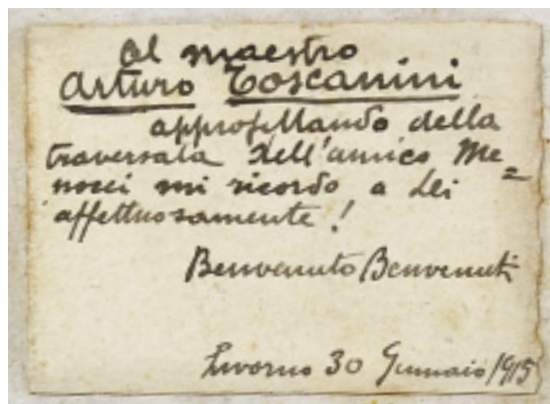 Al maestro
Arturo Toscanini
approfittando della
traversata dell'amico Me=
nocci mi ricordo a Lei
affettuosamente!
Benvenuto Benvenuti
Livorno 30 Gennaio 1915